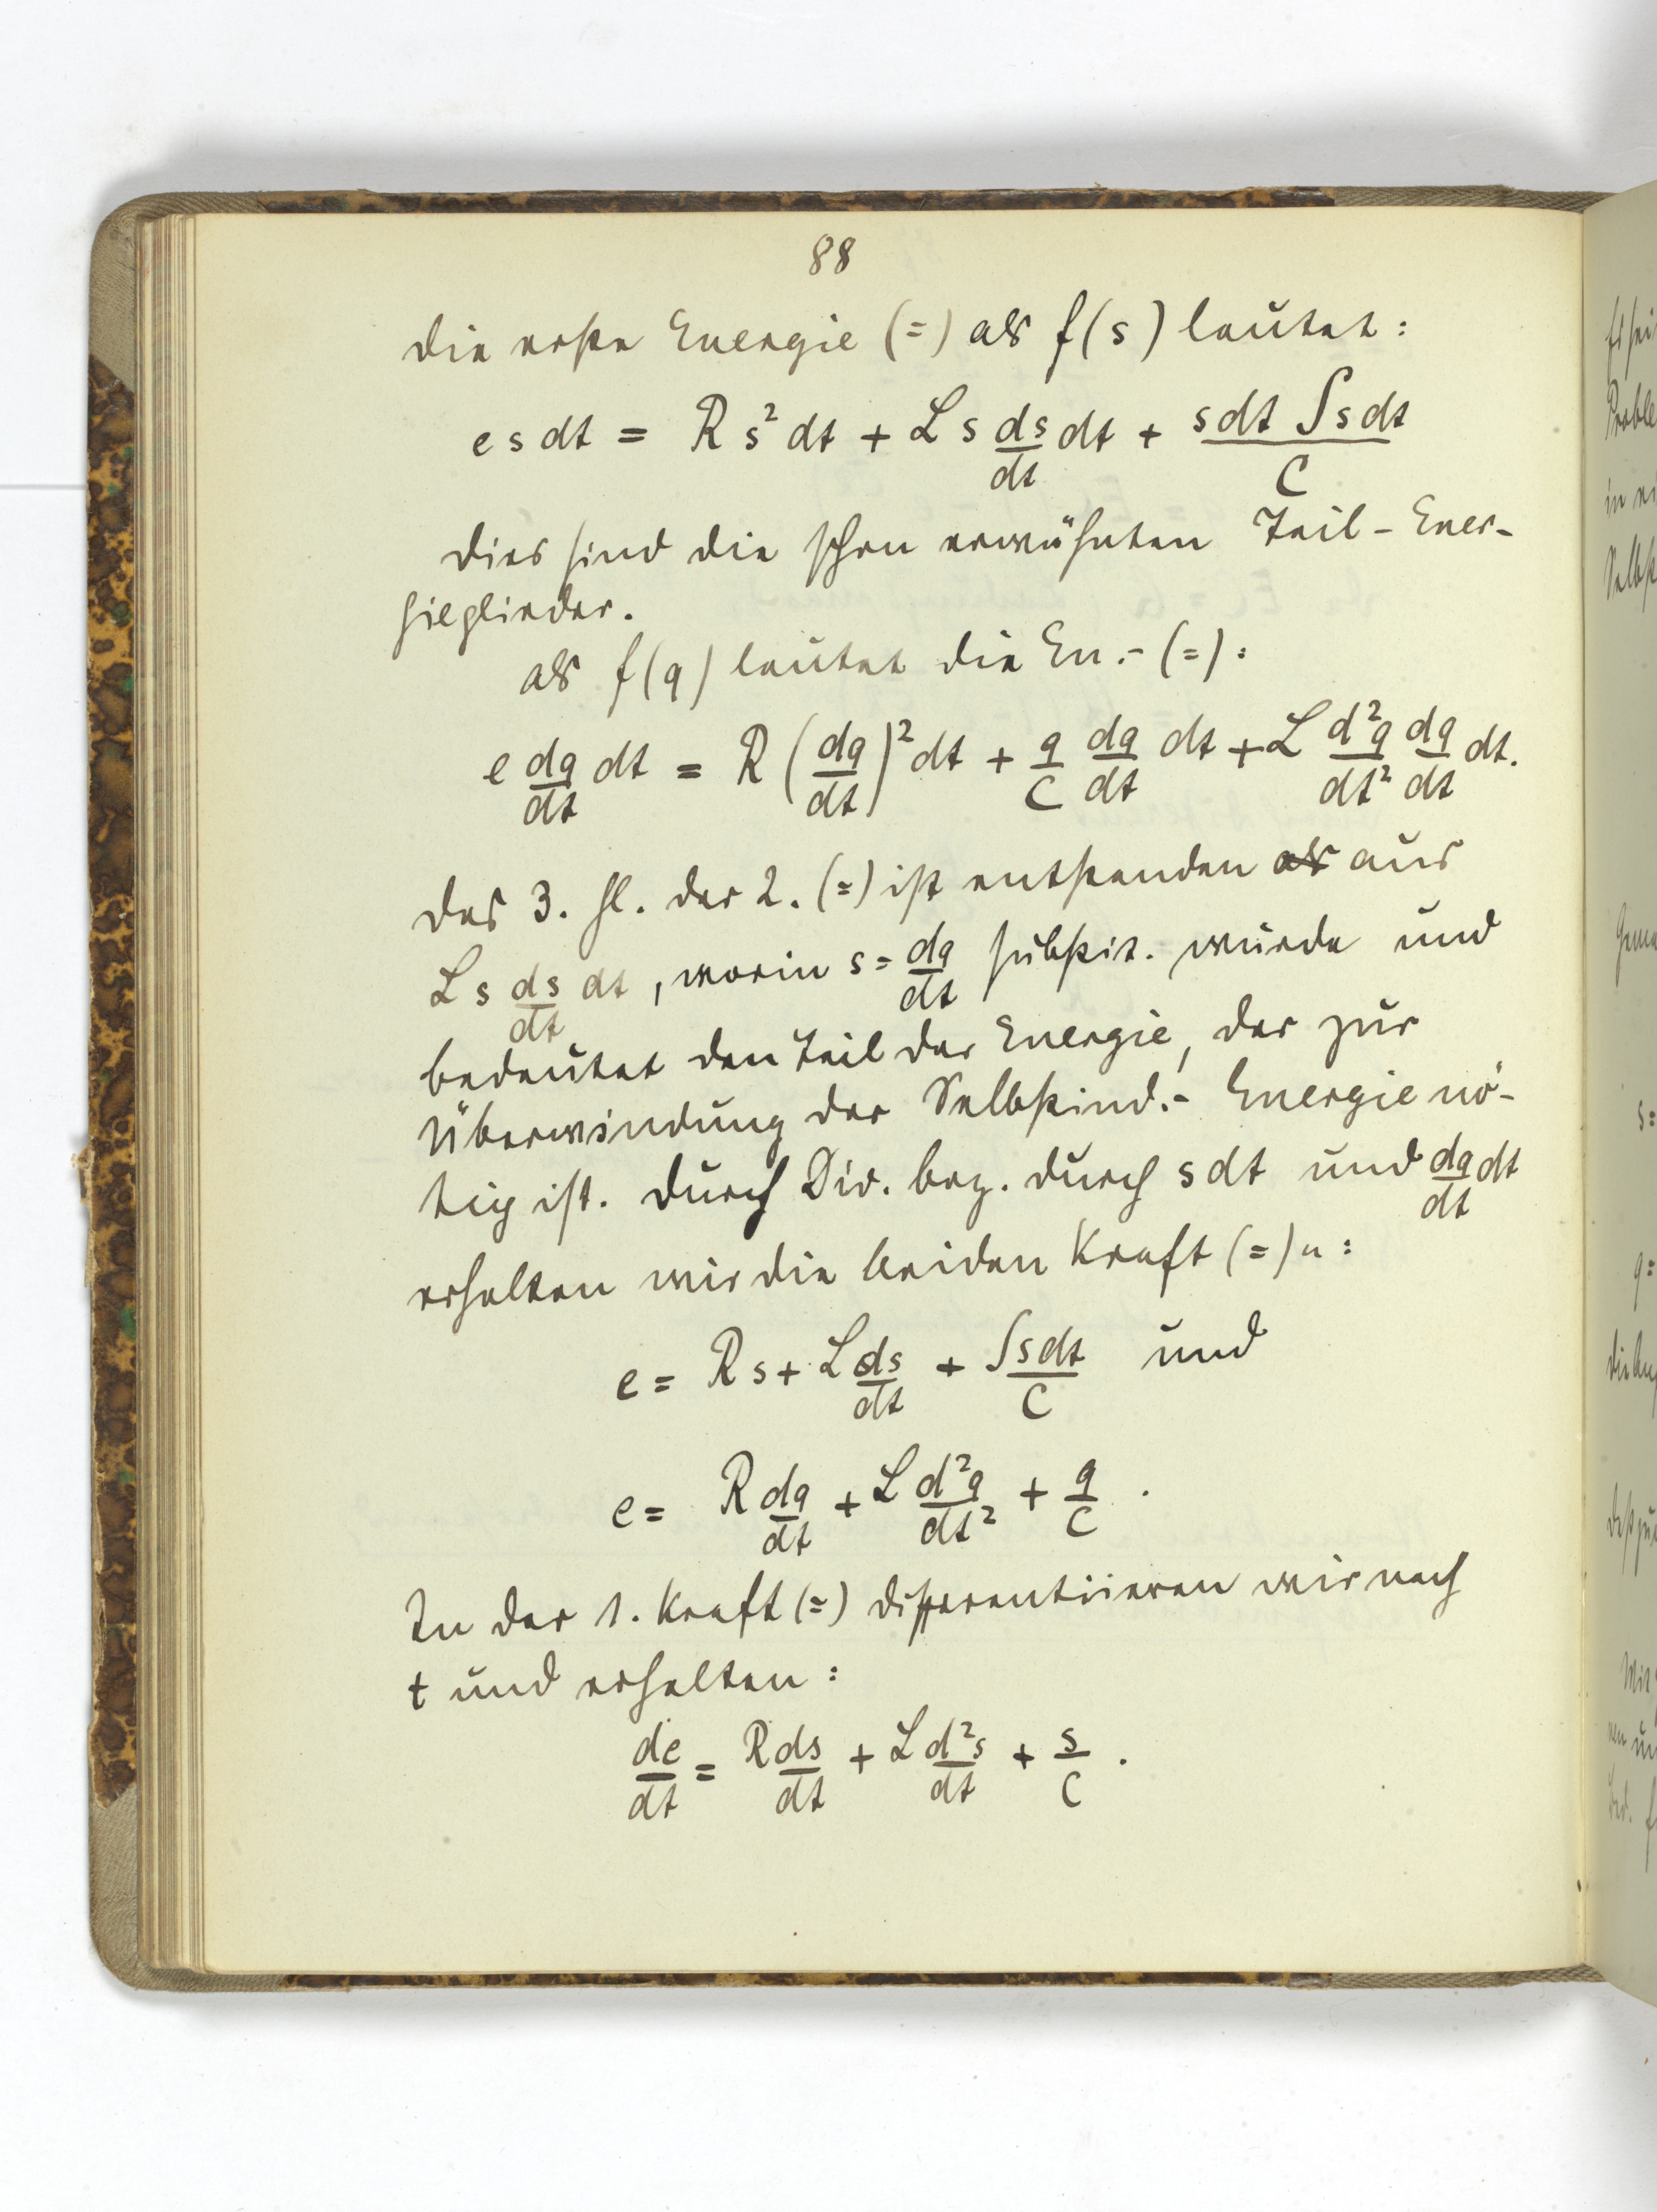 88
die erste Energie (=) als f(s) lautet:
e s dt = R s² dt + L s ds/dt dt + s dt ∫s dt / C
dies sind die schon erwähnten Teil-Ener-
gieglieder.
als f(q) lautet die En.-(=):
e dq/dt dt = R (dq/dt)² dt + q/C dq/dt dt + L d²q/dt² dq/dt dt.
das 3. Gl. der 2. (=) ist entstanden als aus
L s ds/dt dt, worin s = dq/dt substit. wurde und
bedeutet den Teil der Energie, der zur
Überwindung der Selbstind.- Energie nö-
tig ist. durch Div. bez. durch s dt und dq/dt dt
erhalten wir die beiden Kraft (=)n:
e = R s + L ds/dt + ∫s dt / C und
e = R dq/dt + L d²q/dt² + q/C .
In der 1. Kraft (=) differentiieren wir nach
t und erhalten:
de/dt = R ds/dt + L d²s/dt + s/C .